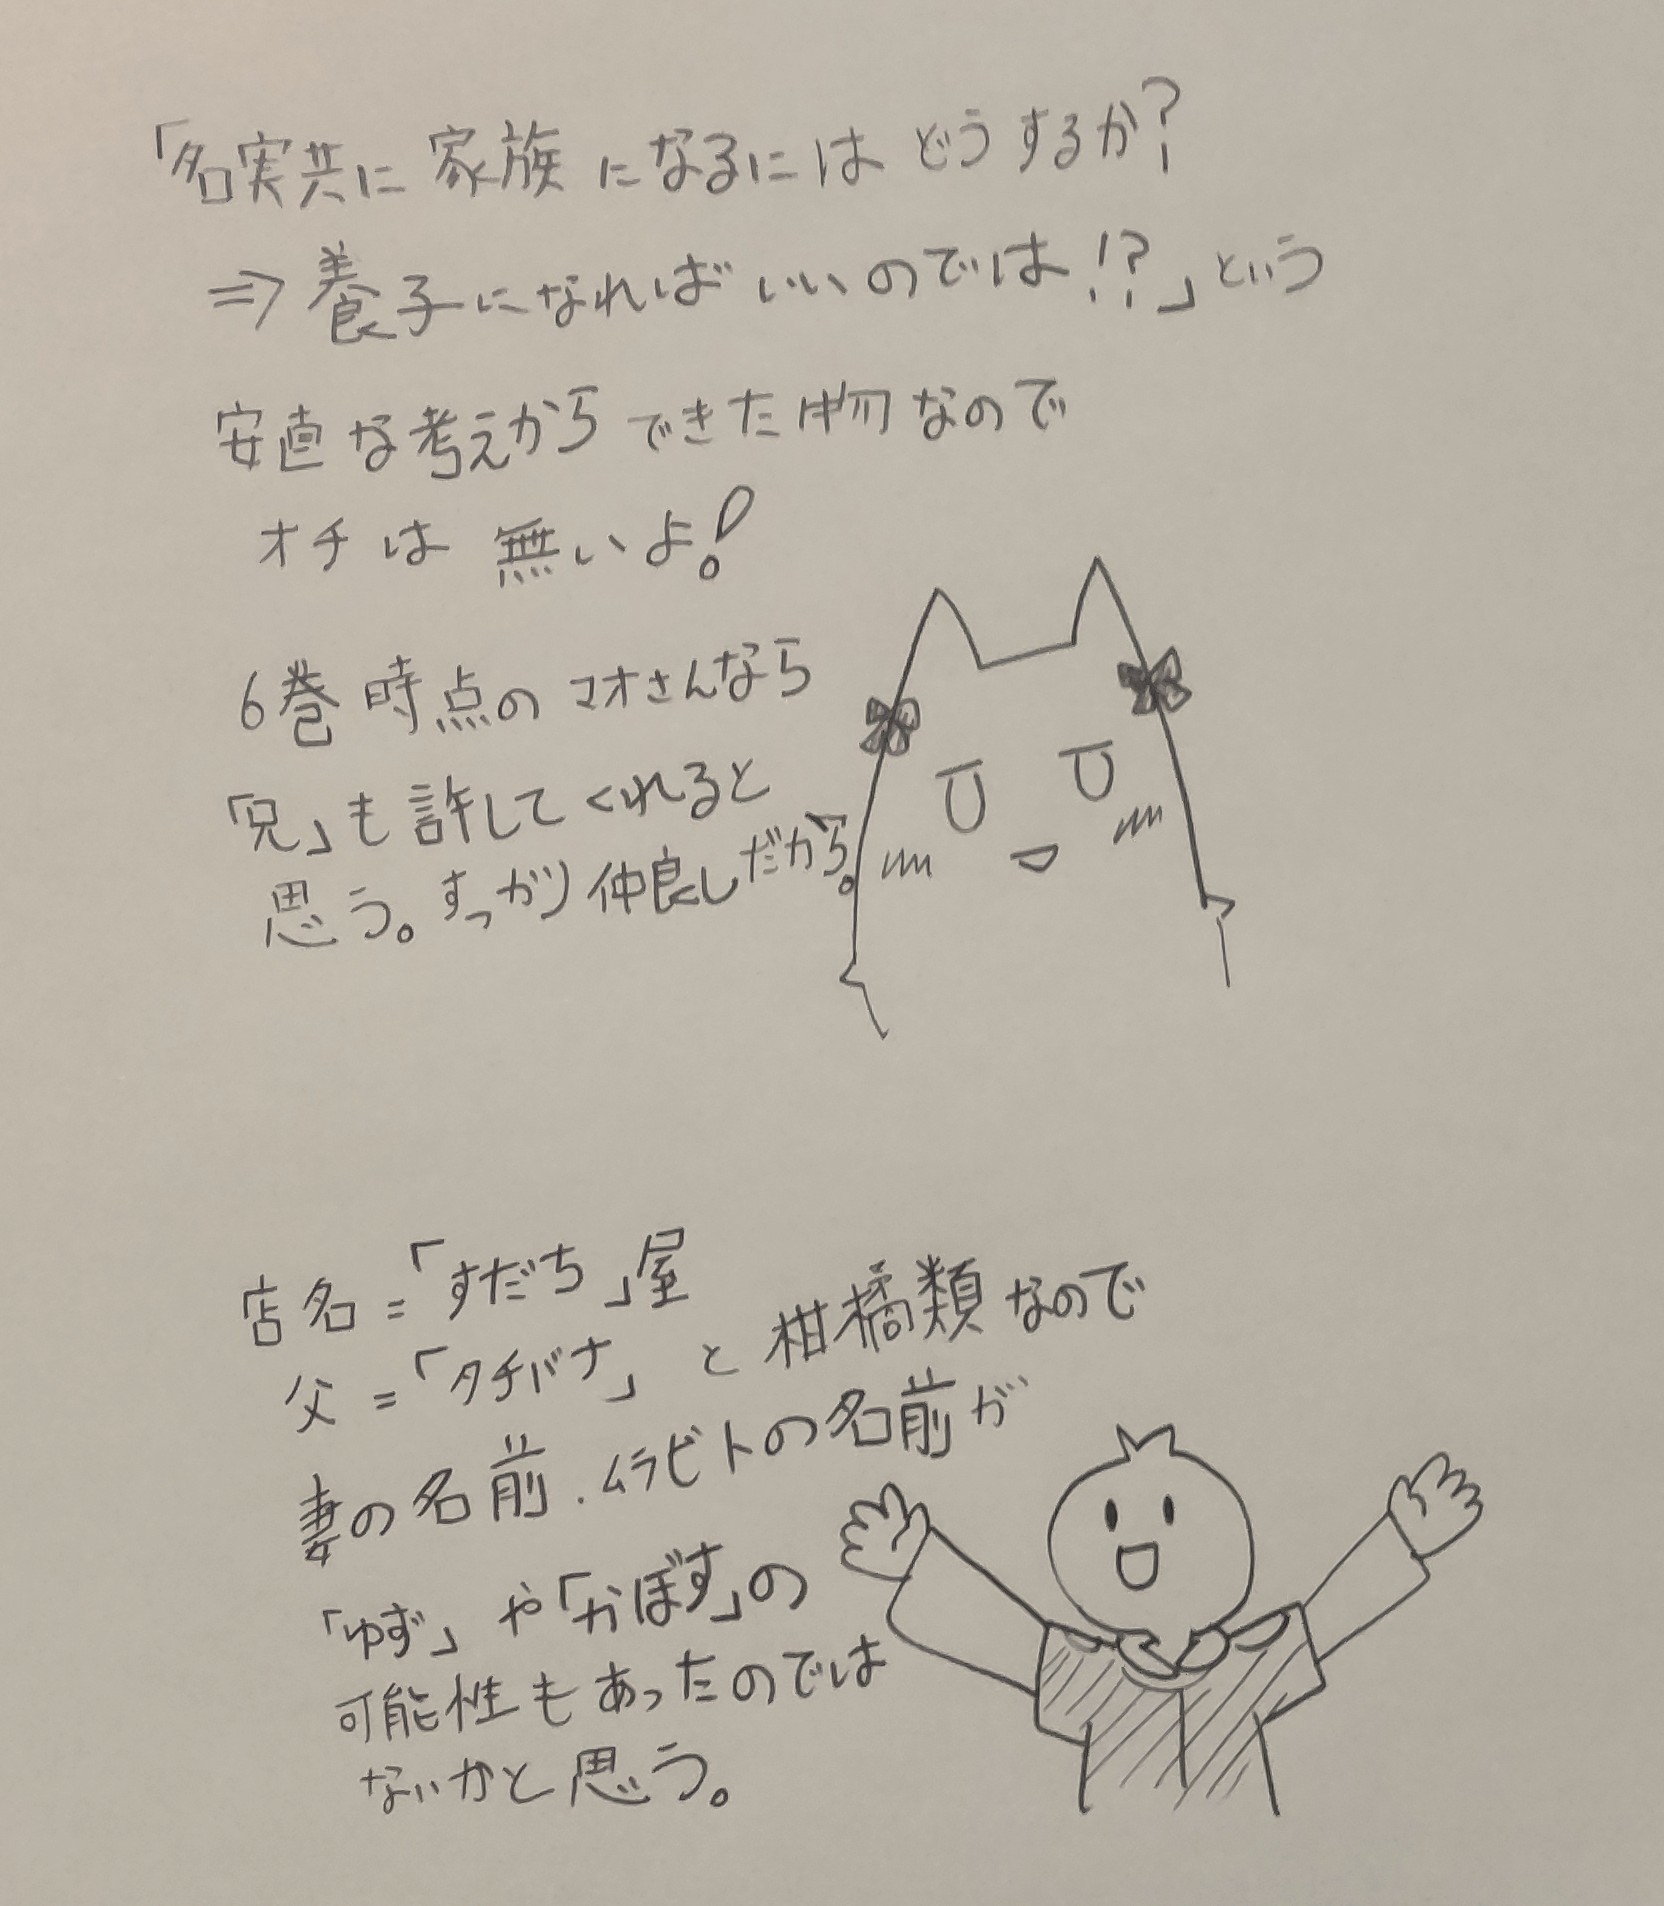 「名実共に家族になるにはどうするか?
⇒養子になればいいのでは!?」という
安直な考えからできた物なので
オチは無いよ!
6巻時点のマオさんなら
「兄」も許してくれると
思う。すっかり仲良しだから。
店名=「すだち」屋
父=「タチバナ」と柑橘類なので
妻の名前.ムラビトの名前が
「ゆず」や「かぼす」の
可能性もあったのでは
ないかと思う。